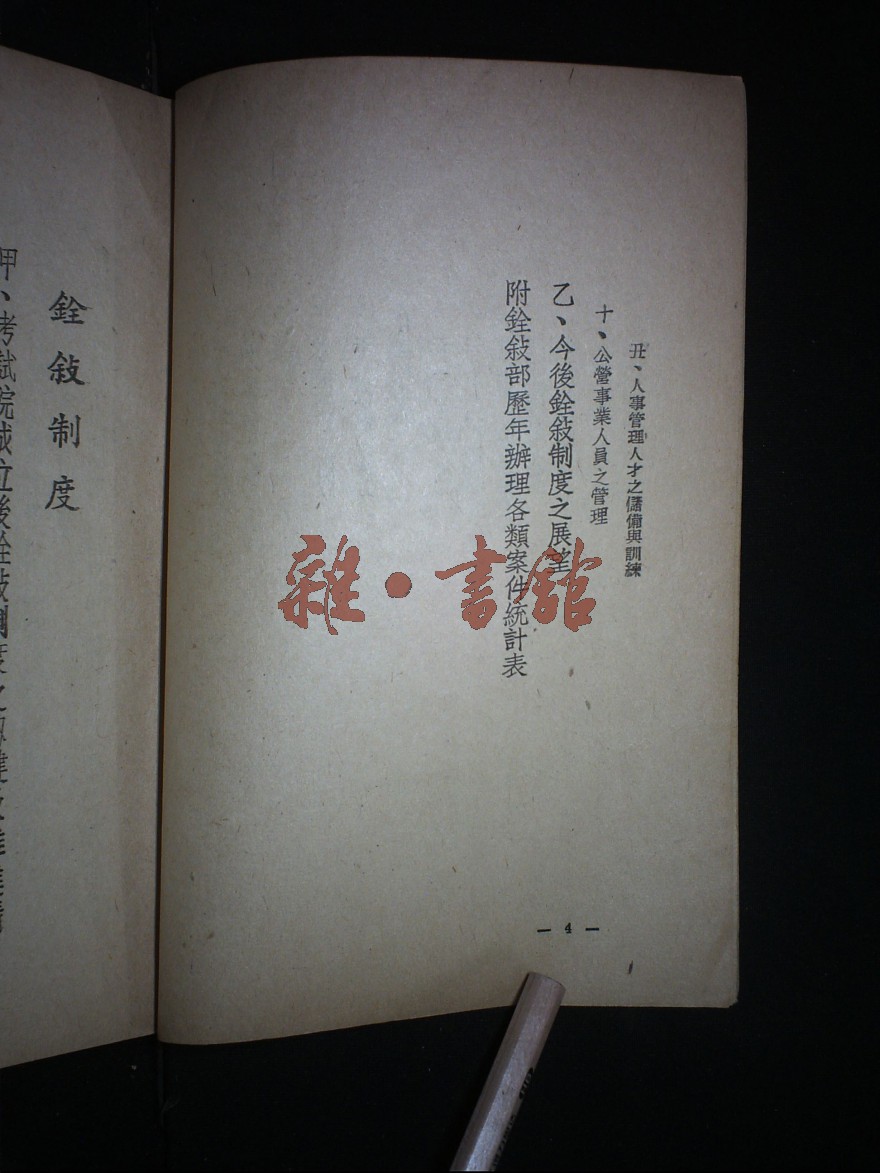 丑、人事管理人才之儲備與訓練
十、公營事業人員之管理
乙、今後銓敍制度之展望
附銓敍部歷年辦理各類案件統計表
— 4 —
銓敍制度
甲、考試院成立後銓敍制度之
雜·書館